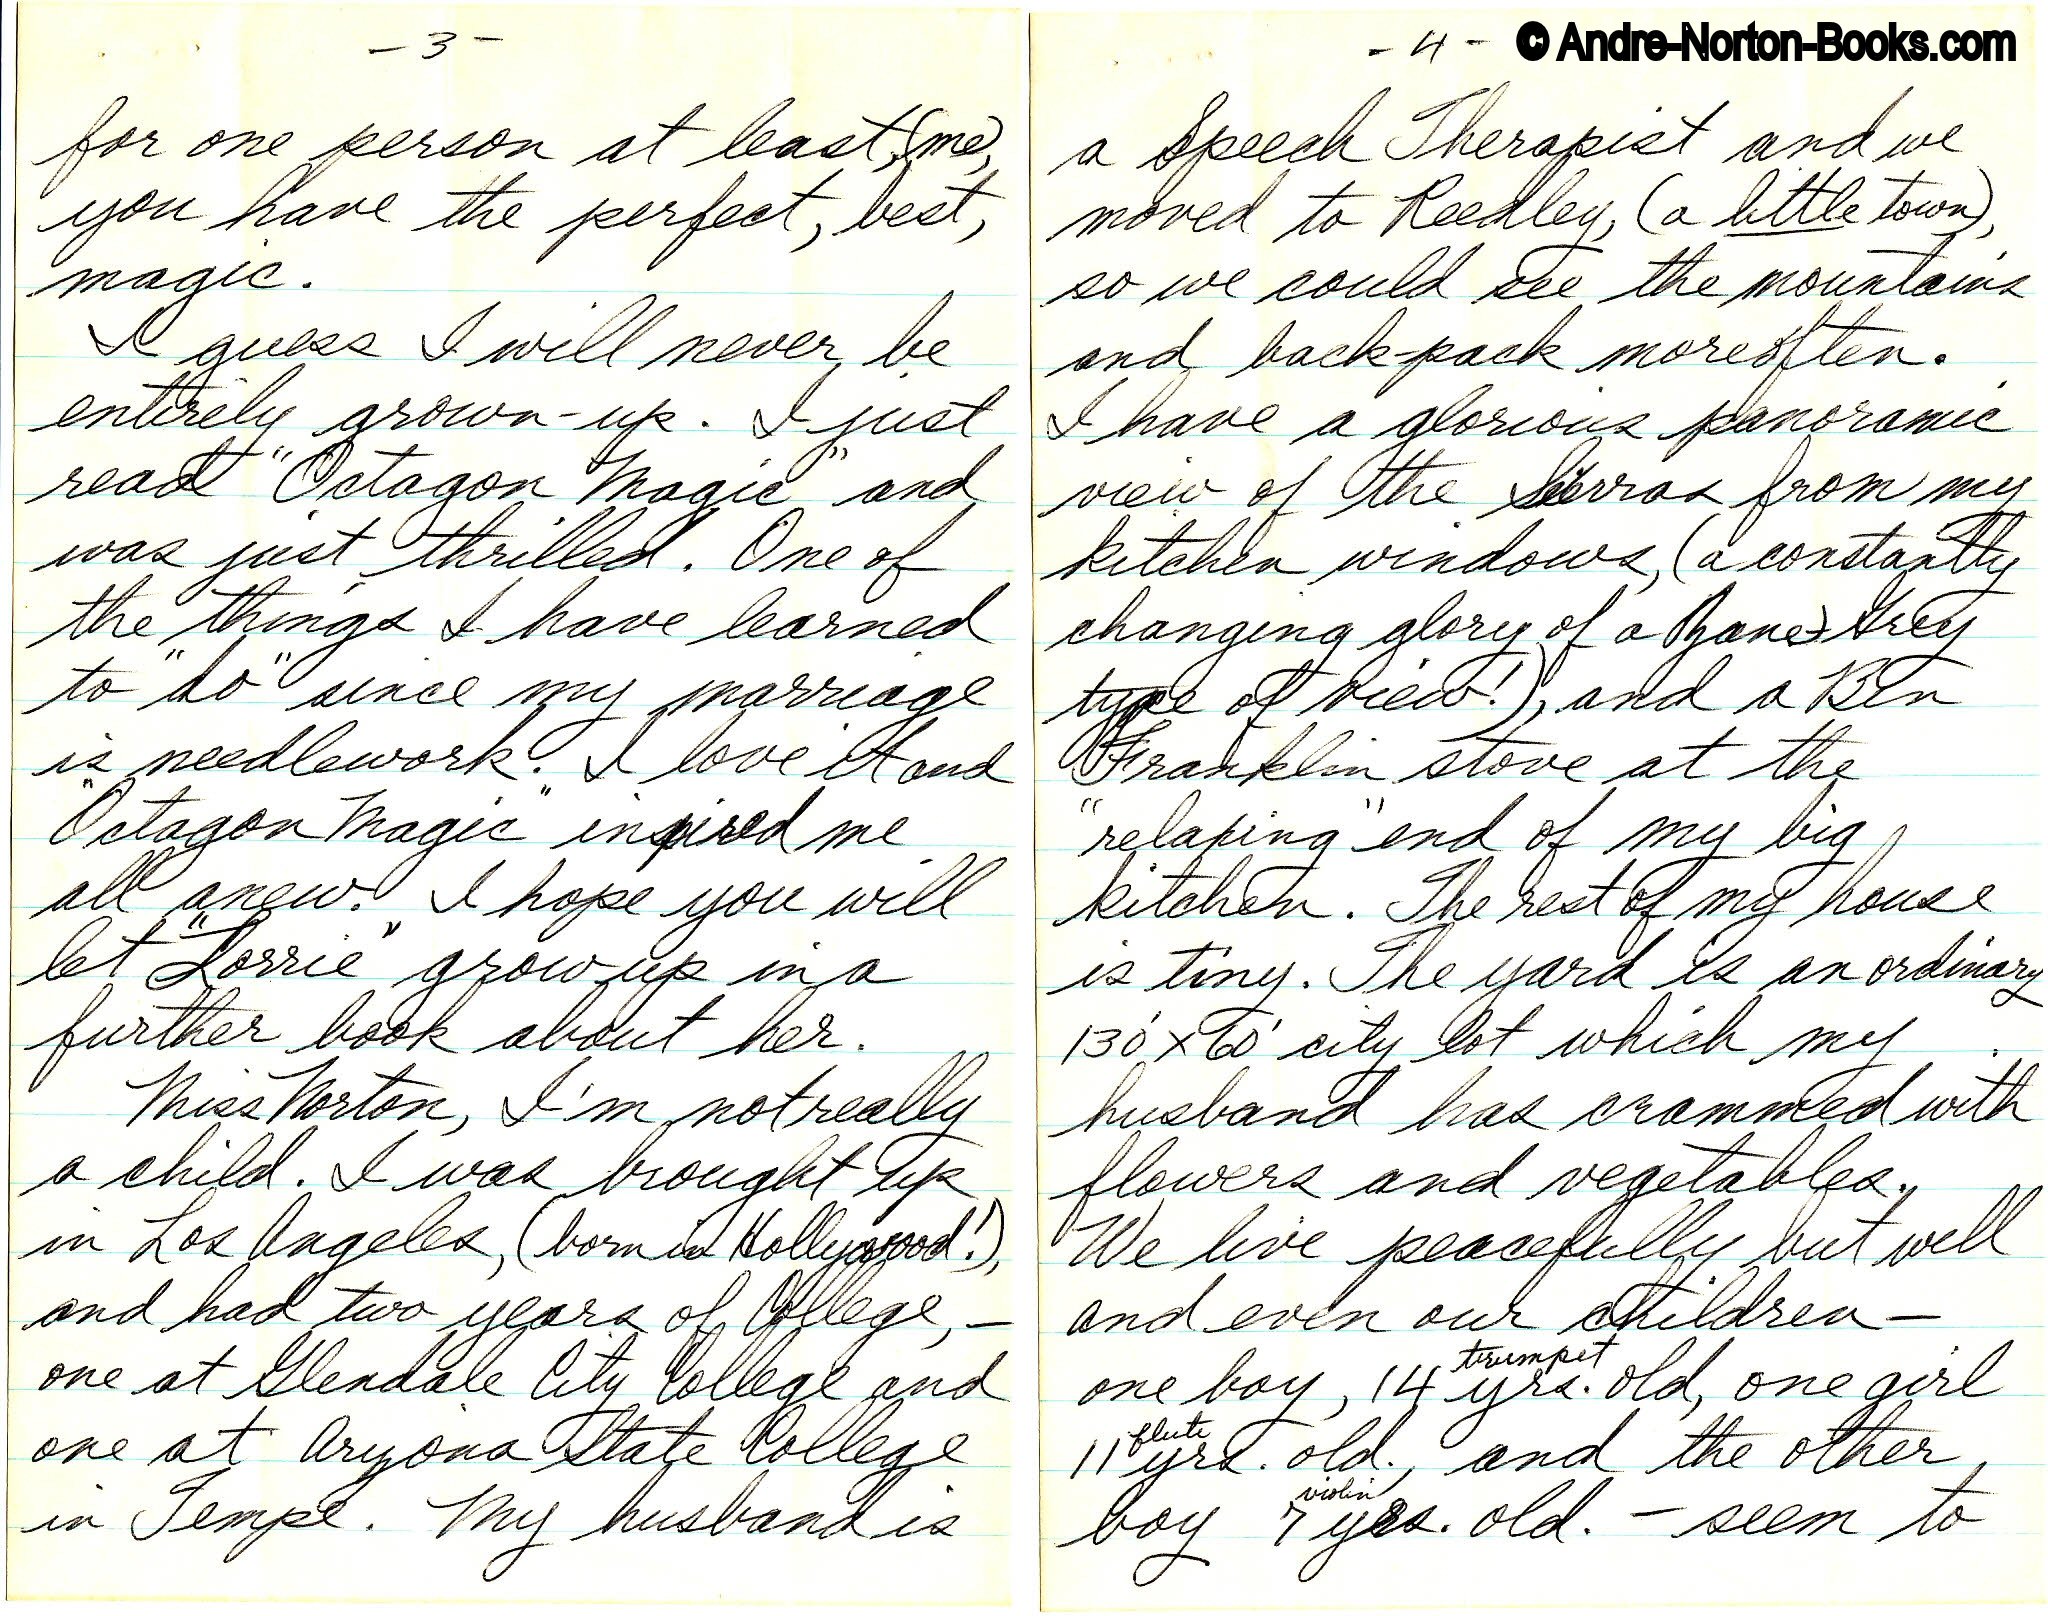 - 3 -
for one person at least, (me),
you have the perfect, best,
magic.
I guess I will never be
entirely grown-up. I just
read "Octagon Magic" and
was just thrilled. One of
the things I have learned
to "do" since my marriage
is needlework. I love it and
"Octagon Magic" inspired me
all anew. I hope you will
let "Lorrie" grow up in a
further book about her.
Miss Norton, I'm not really
a child. I was brought up
in Los Angeles, (born in Hollywood!),
and had two years of College, –
one at Glendale City College and
one at Aryona State College
in Tempe. My husband is
- 4 -
© Andre-Norton-Books.com
a Speech Therapist and we
moved to Reedley, (a little town),
so we could see the mountains
and back-pack more often.
I have a glorious panoramic
view of the Sierras from my
kitchen windows, (a constantly
changing glory of a Zane Grey
type of view!), and a Ben
Franklin stove at the
"relaxing" end of my big
kitchen. The rest of my house
is tiny. The yard is an ordinary
130' x 60' city lot which my
husband has crammed with
flowers and vegetables.
We live peacefully but well
and even our children –
trumpet
one boy, 14 yrs. old, one girl
flute
11 yrs. old., and the other
violin
boy 7 yrs. old. – seem to